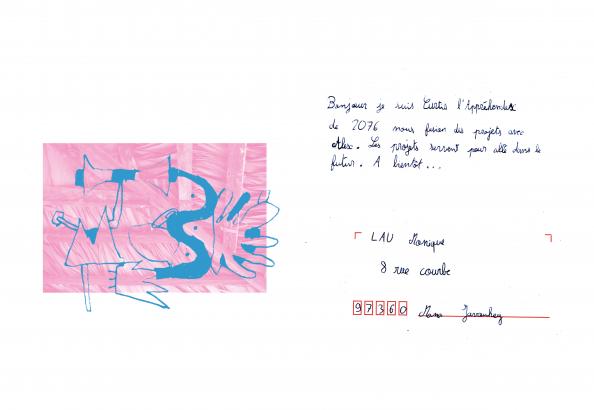 Bonjour je suis Curtis l'Appréhendex
de 2076 nous fesion des projets avec
Alex. Les projets serront pour allé dans le
futur. A bientot...
LAU Monique
8 rue courbe
97360 Mana Javouhey